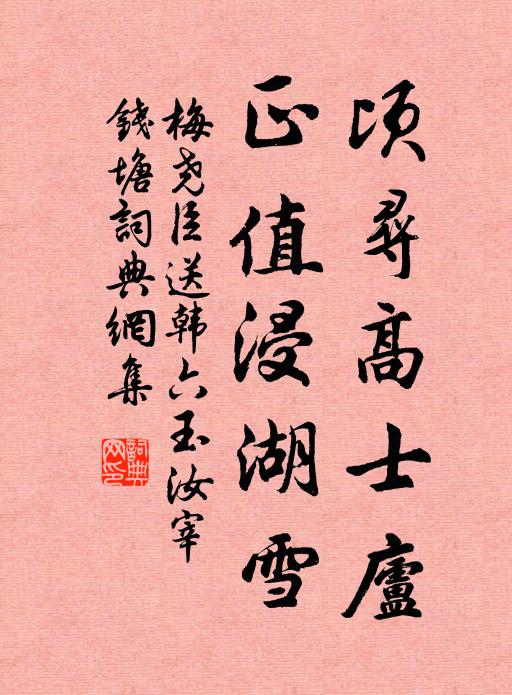 頃尋高士廬
正值浸湖雪
梅尧臣送韩六玉汝宰
錢塘詞典網集
詞典
网印